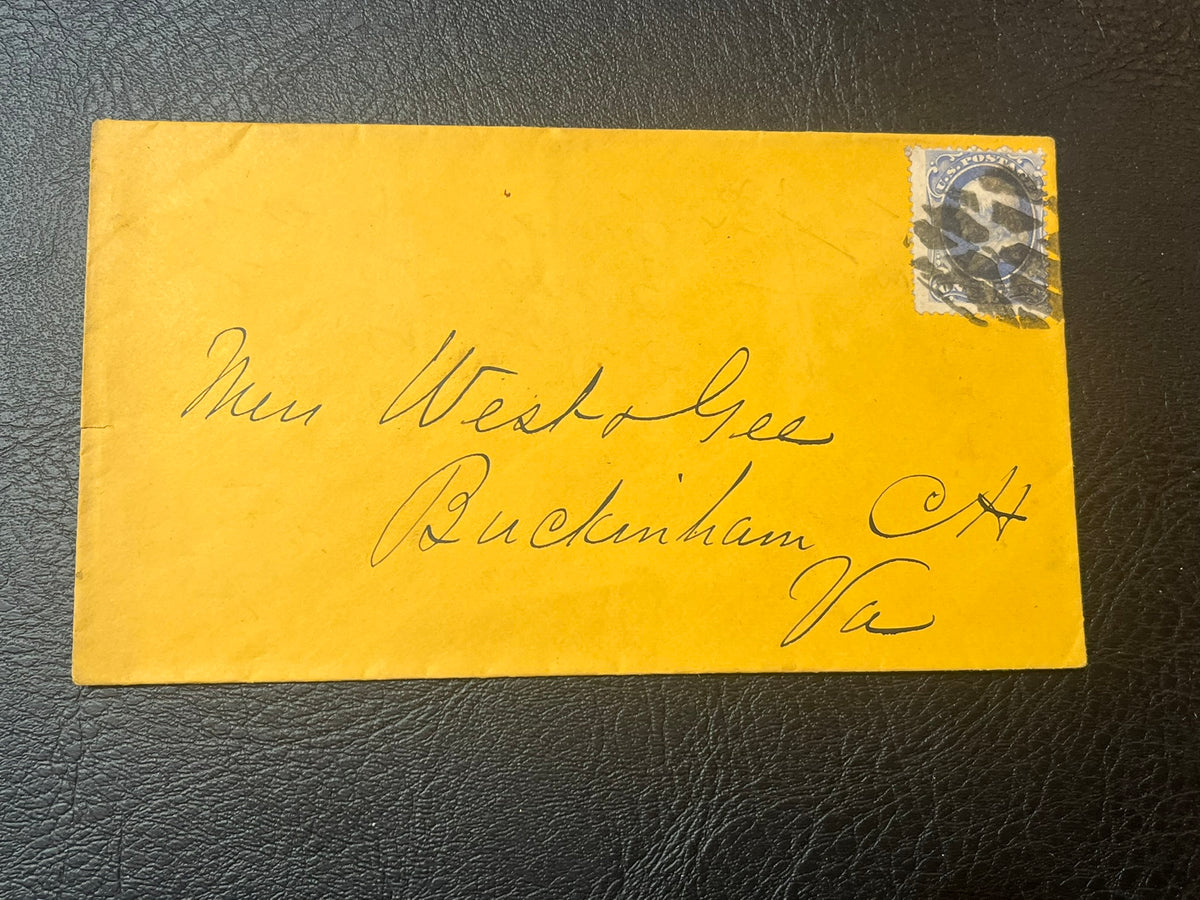 U.S. POSTAG
Mess West & Gee
Buckinham CH
Va